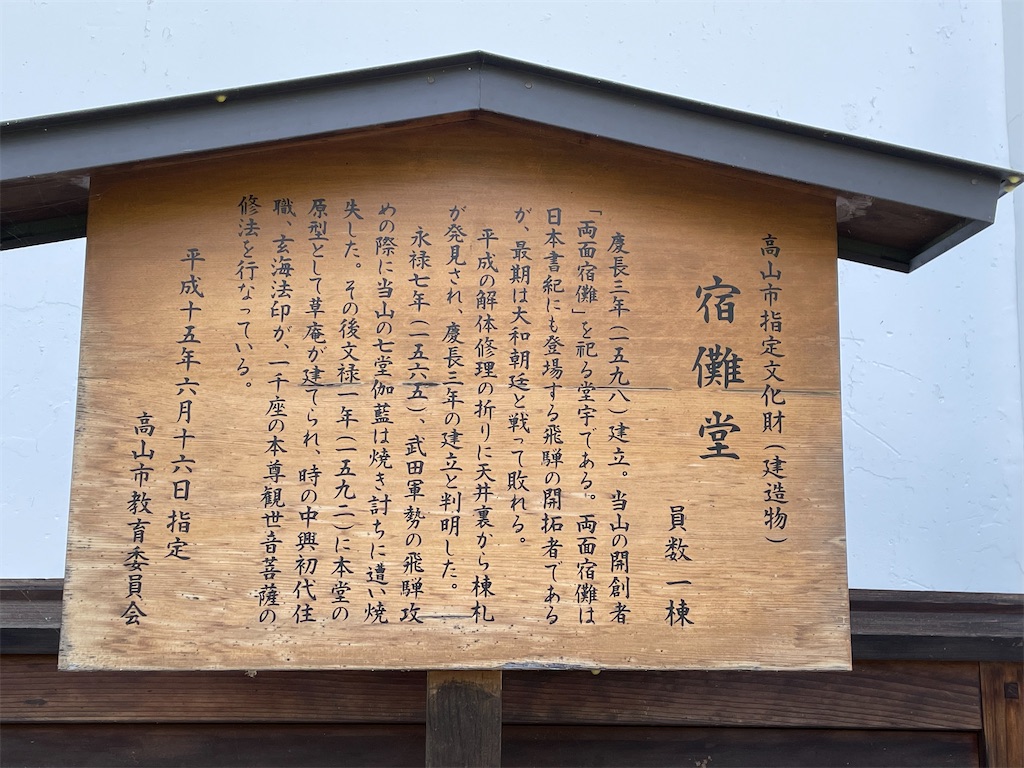 高山市指定文化財（建造物）
宿儺堂
員数一棟
慶長三年（一五九八）建立。当山の開創者
「両面宿儺」を祀る堂宇である。両面宿儺は
日本書紀にも登場する飛騨の開拓者である
が、最期は大和朝廷と戦って敗れる。
平成の解体修理の折りに天井裏から棟札
が発見され、慶長三年の建立と判明した。
永禄七年（一五六五）、武田軍勢の飛騨攻
めの際に当山の七堂伽藍は焼き討ちに遭い焼
失した。その後文禄一年（一五九二）に本堂の
原型として草庵が建てられ、時の中興初代住
職、玄海法印が、一千座の本尊観世音菩薩の
修法を行なっている。
平成十五年六月十六日指定
高山市教育委員会